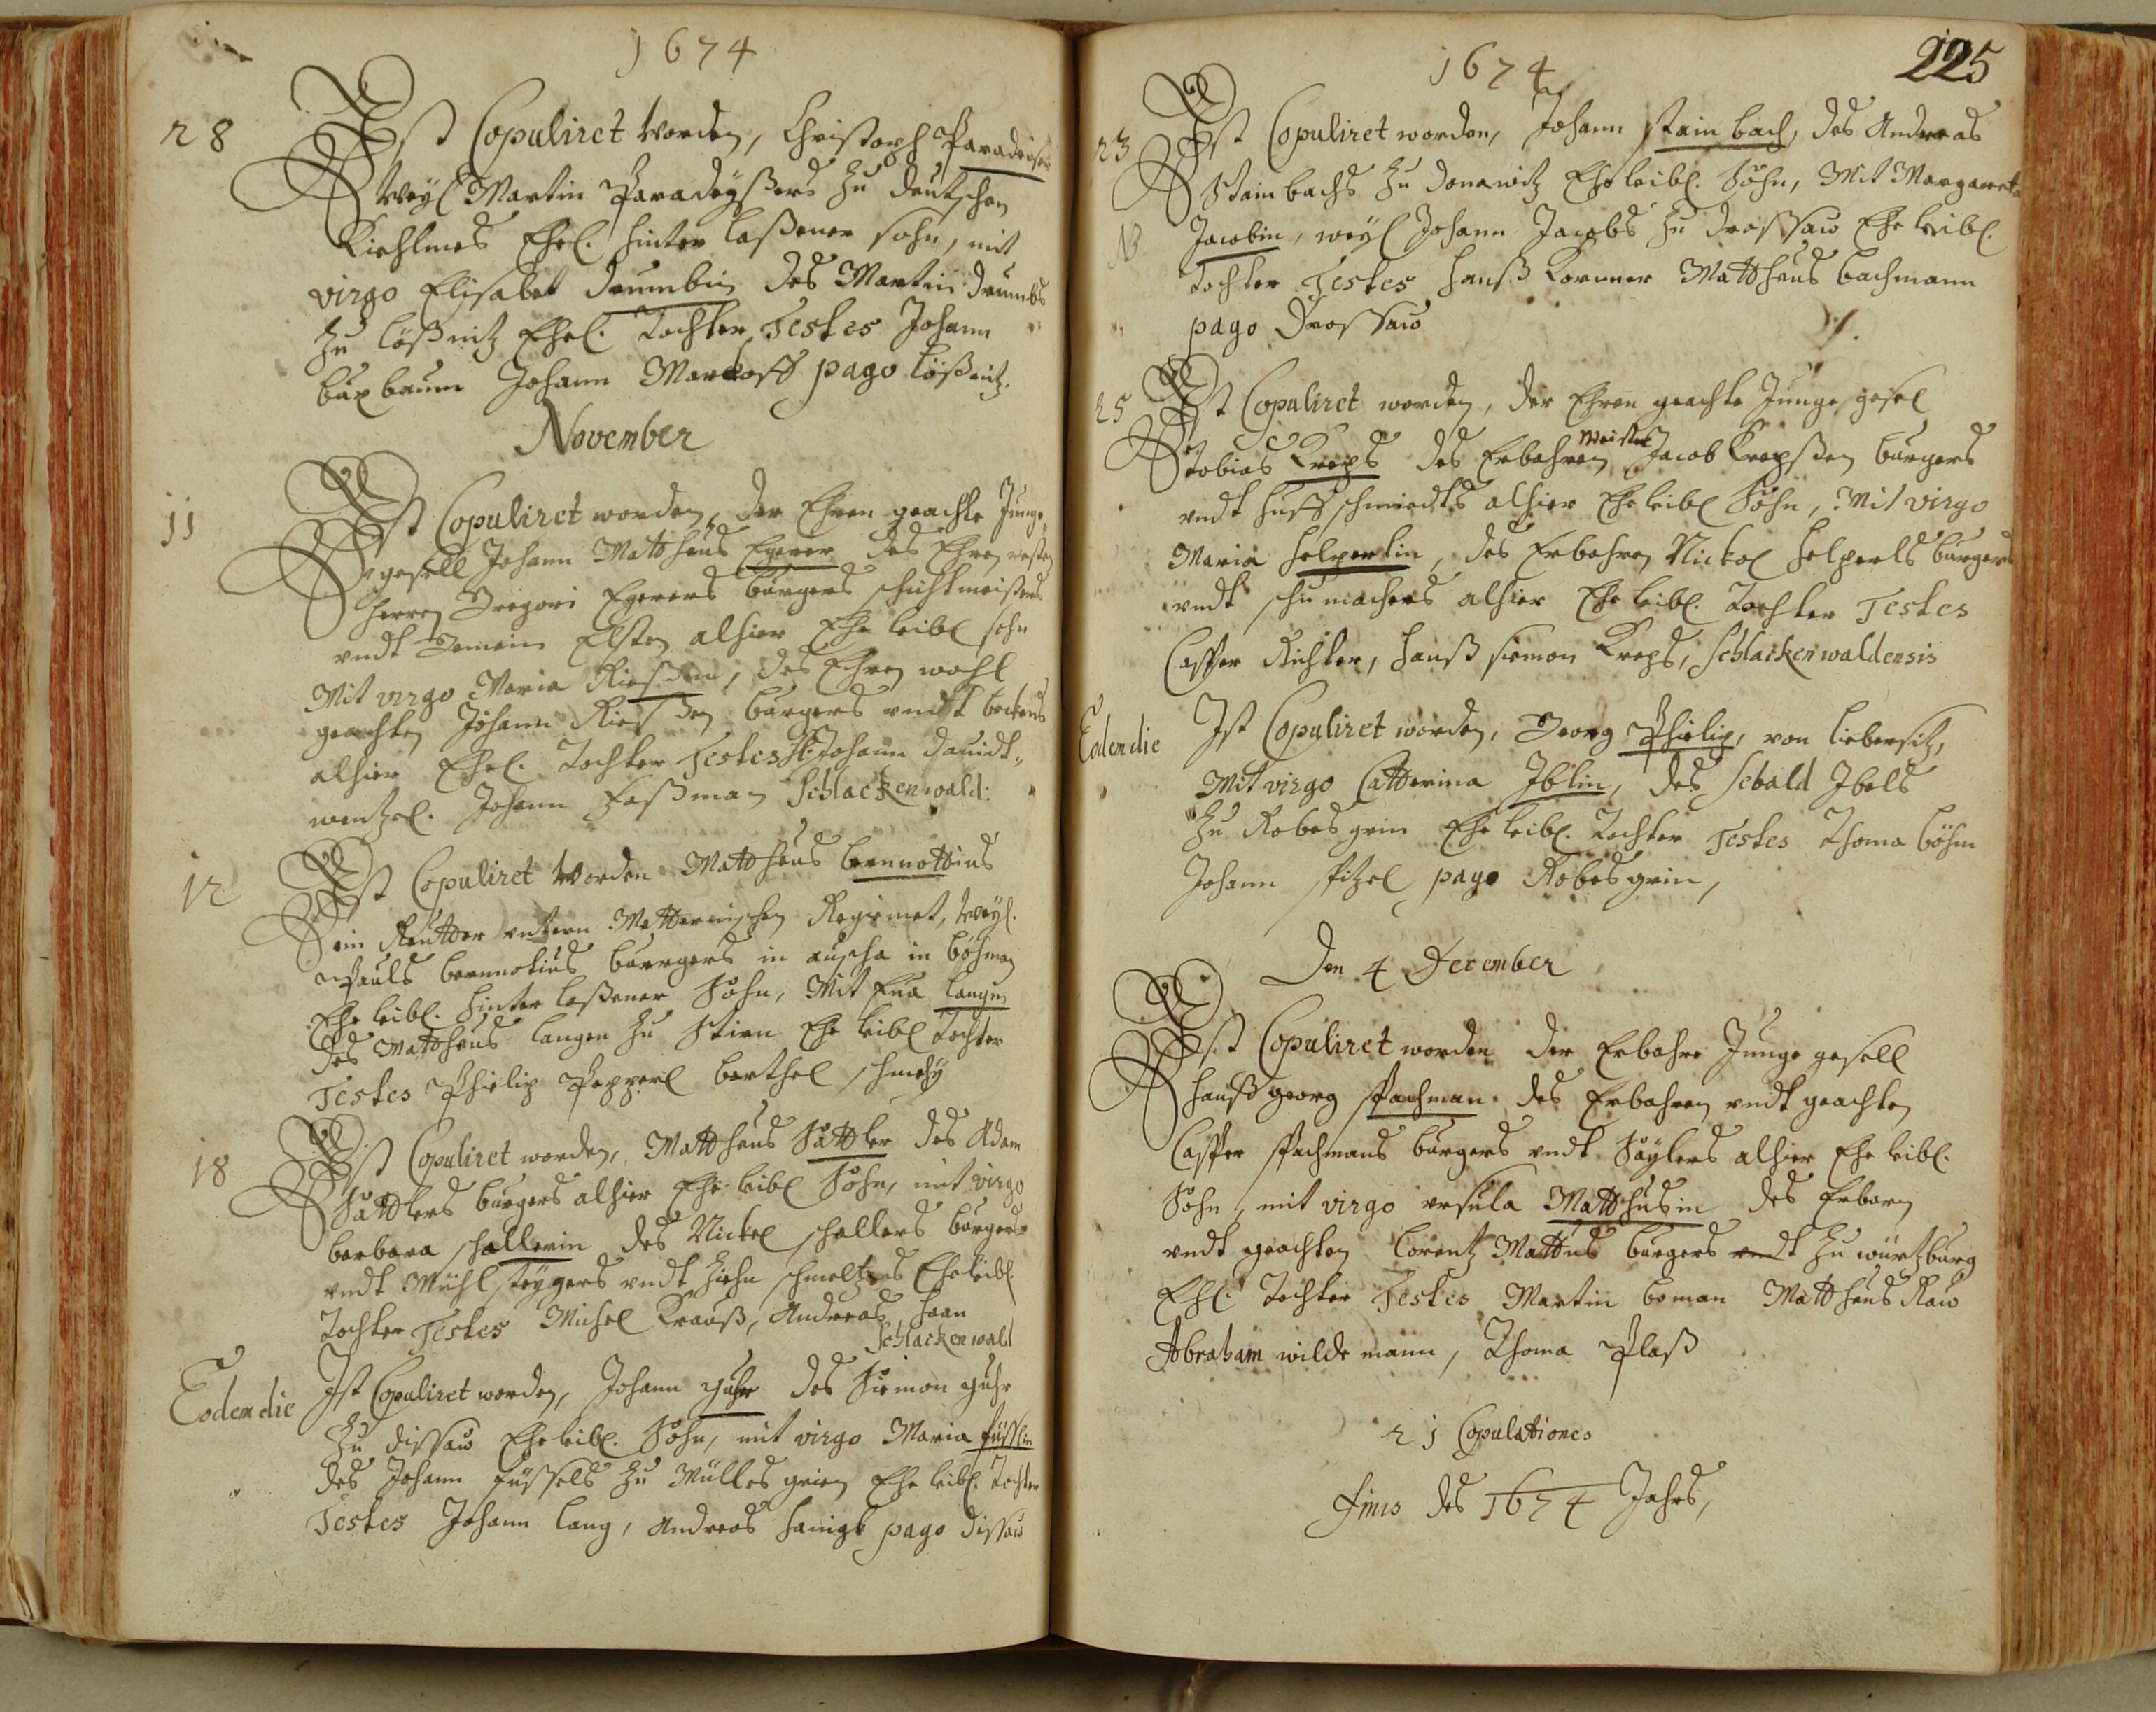 1674
28
Ist Copuliret worden, Christoph Paradeiser
Weyl Martin Paradeyßers zu deutschen
Kiehlmes Ehel. hinter laßener sohn, mit
virgo Elisabet Drumbin des Martin Drumbs
zu Lößnitz Ehel. Tochter Testes Johann
buxbaum Johann Markost pago Lößnitz.
November
11
Ist Copuliret worden, der Ehren geachte Junge
gesell Johann Mattheus Egerer des Ehren vesten
Herren Gregori Egerers burgers schichtmeisters
undt Gemein Elsten alhier Ehe leibl sohn
Mit virgo Maria Rießin, des Ehren wohl
geachten Johann Rießen burgers undt beckens
alhier Ehel. Tochter Testes H: Johann Dauidt
wentzel. Johann Faßman Schlackenwald:
12
Ist Copuliret worden Mattheus bernnottius
ein Reutter untern Metternischen Regiment, Weyl.
Pauls bernnotius buergers in auscha in böhmen
Ehe leibl. hinter laßener Sohn, Mit Eua Langin
des Mattheus Langen zu Stirn Ehe leibl Tochter
Testes Philip Pepperl barthel schmehy
18
Ist Copuliret worden, Mattheus Sattler des Adam
Sattlers burgers alhier Ehe leibl Sohn, mit virgo
barbara schallerin des Nickel schallers burgers
undt Mühl steygers undt Ziehn schmeltzers Eheleibl.
Tochter Testes Michel Krauß, Andreas haan
Schlackenwald
Eodem die
Ist Copuliret worden, Johann Guhr des Simon guhr
zu dissaw Eheleibl. Sohn, mit virgo Maria füsslin
des Johann füssels zu Mülles grien Ehe leibl. Tochter
Testes Johann Lang, Andreas hanigk pago dissaw
1674
225
23
NB
Ist Copuliret worden, Johann stainbach, des Andreas
Stainbachs zu donawitz Ehe leibl. Sohn, Mit Margareta
Jacobin, weyl Johann Jacobs zu drossaw Ehe leibl.
Tochter Testes hanß Korner Mattheus bachmann
pago drossaw
25
Ist Copuliret worden, der Ehren geachte Junge gesel
Tobias Kreps des Erbahren Meister Jacob Krepßen burgers
undt huffschmiedts alhier Ehe leibl Sohn, Mit virgo
Maria helperlin, des Erbahren Nickol helperls burgers
undt schumachers alhier Ehe leibl. Tochter Testes
Casper Richter, hanß siemon Kreps, Schlackenwaldensis
Eodem die
Ist Copuliret worden, Georg Philip, von Liebersitz,
Mit virgo Catterina Iblin, des Sebald Ibels
zu Robesgrin Ehe leibl. Tochter Testes Thoma böhm
Johann Pitzel pago Robesgrin,
Den 4 December
Ist Copuliret worden der Erbahre Junge gesell
hanß georg Pachman des Erbahren undt geachten
Casper Pachmans burgers undt Säylers alhier Ehe leibl.
Sohn, mit virgo ursula Matthusin des Erbarn
undt geachten Lorentz Mattus burgers undt zu würtzburg
Ehl. Tochter Testes Martin boman Mattheus Raw
Abraham wildemann, Thoma Plaß
21 Copulationes
Finis des 1674 Jahrs,